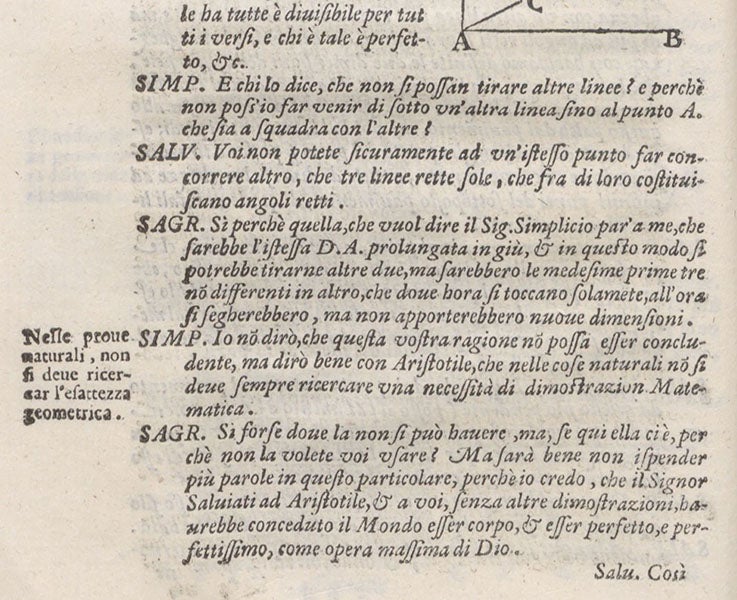 le ha tutte è diuisibile per tut
ti i versi, e chi è tale è perfet-
to, &c.
C
A B
SIMP. E chi lo dice, che non si possan tirare altre linee? e perchè
non poss'io far venir di sotto vn'altra linea sino al punto A.
che sia a squadra con l'altre?
SALV. Voi non potete sicuramente ad vn'istesso punto far con-
correre altro, che tre linee rette sole, che fra di loro costitui-
scano angoli retti.
SAGR. Sì perchè quella, che vuol dire il Sig. Simplicio par'a me, che
sarebbe l'istessa D.A. prolungata in giù, & in questo modo si
potrebbe tirarne altre due, ma sarebbero le medesime prime tre
nõ differenti in altro, che doue hora si toccano solamẽte, all'ora
si segherebbero, ma non apporterebbero nuoue dimensioni.
Nelle proue
naturali, non
si deue ricer-
car l'esattezza
geometrica.
SIMP. Io nõ dirò, che questa vostra ragione nõ possa esser conclu-
dente, ma dirò bene con Aristotile, che nelle cose naturali nõ si
deue sempre ricercare vna necessità di dimostrazion Mate-
matica.
SAGR. Si forse doue la non si può hauere, ma, se qui ella ci è, per
chè non la volete voi vsare? Ma sarà bene non ispender
più parole in questo particolare, perchè io credo, che il Signor
Saluiati ad Aristotile, & a voi, senza altre dimostrazioni, ha-
urebbe conceduto il Mondo esser corpo, & esser perfetto, e per-
fettissimo, come opera massima di Dio.
Salu. Così